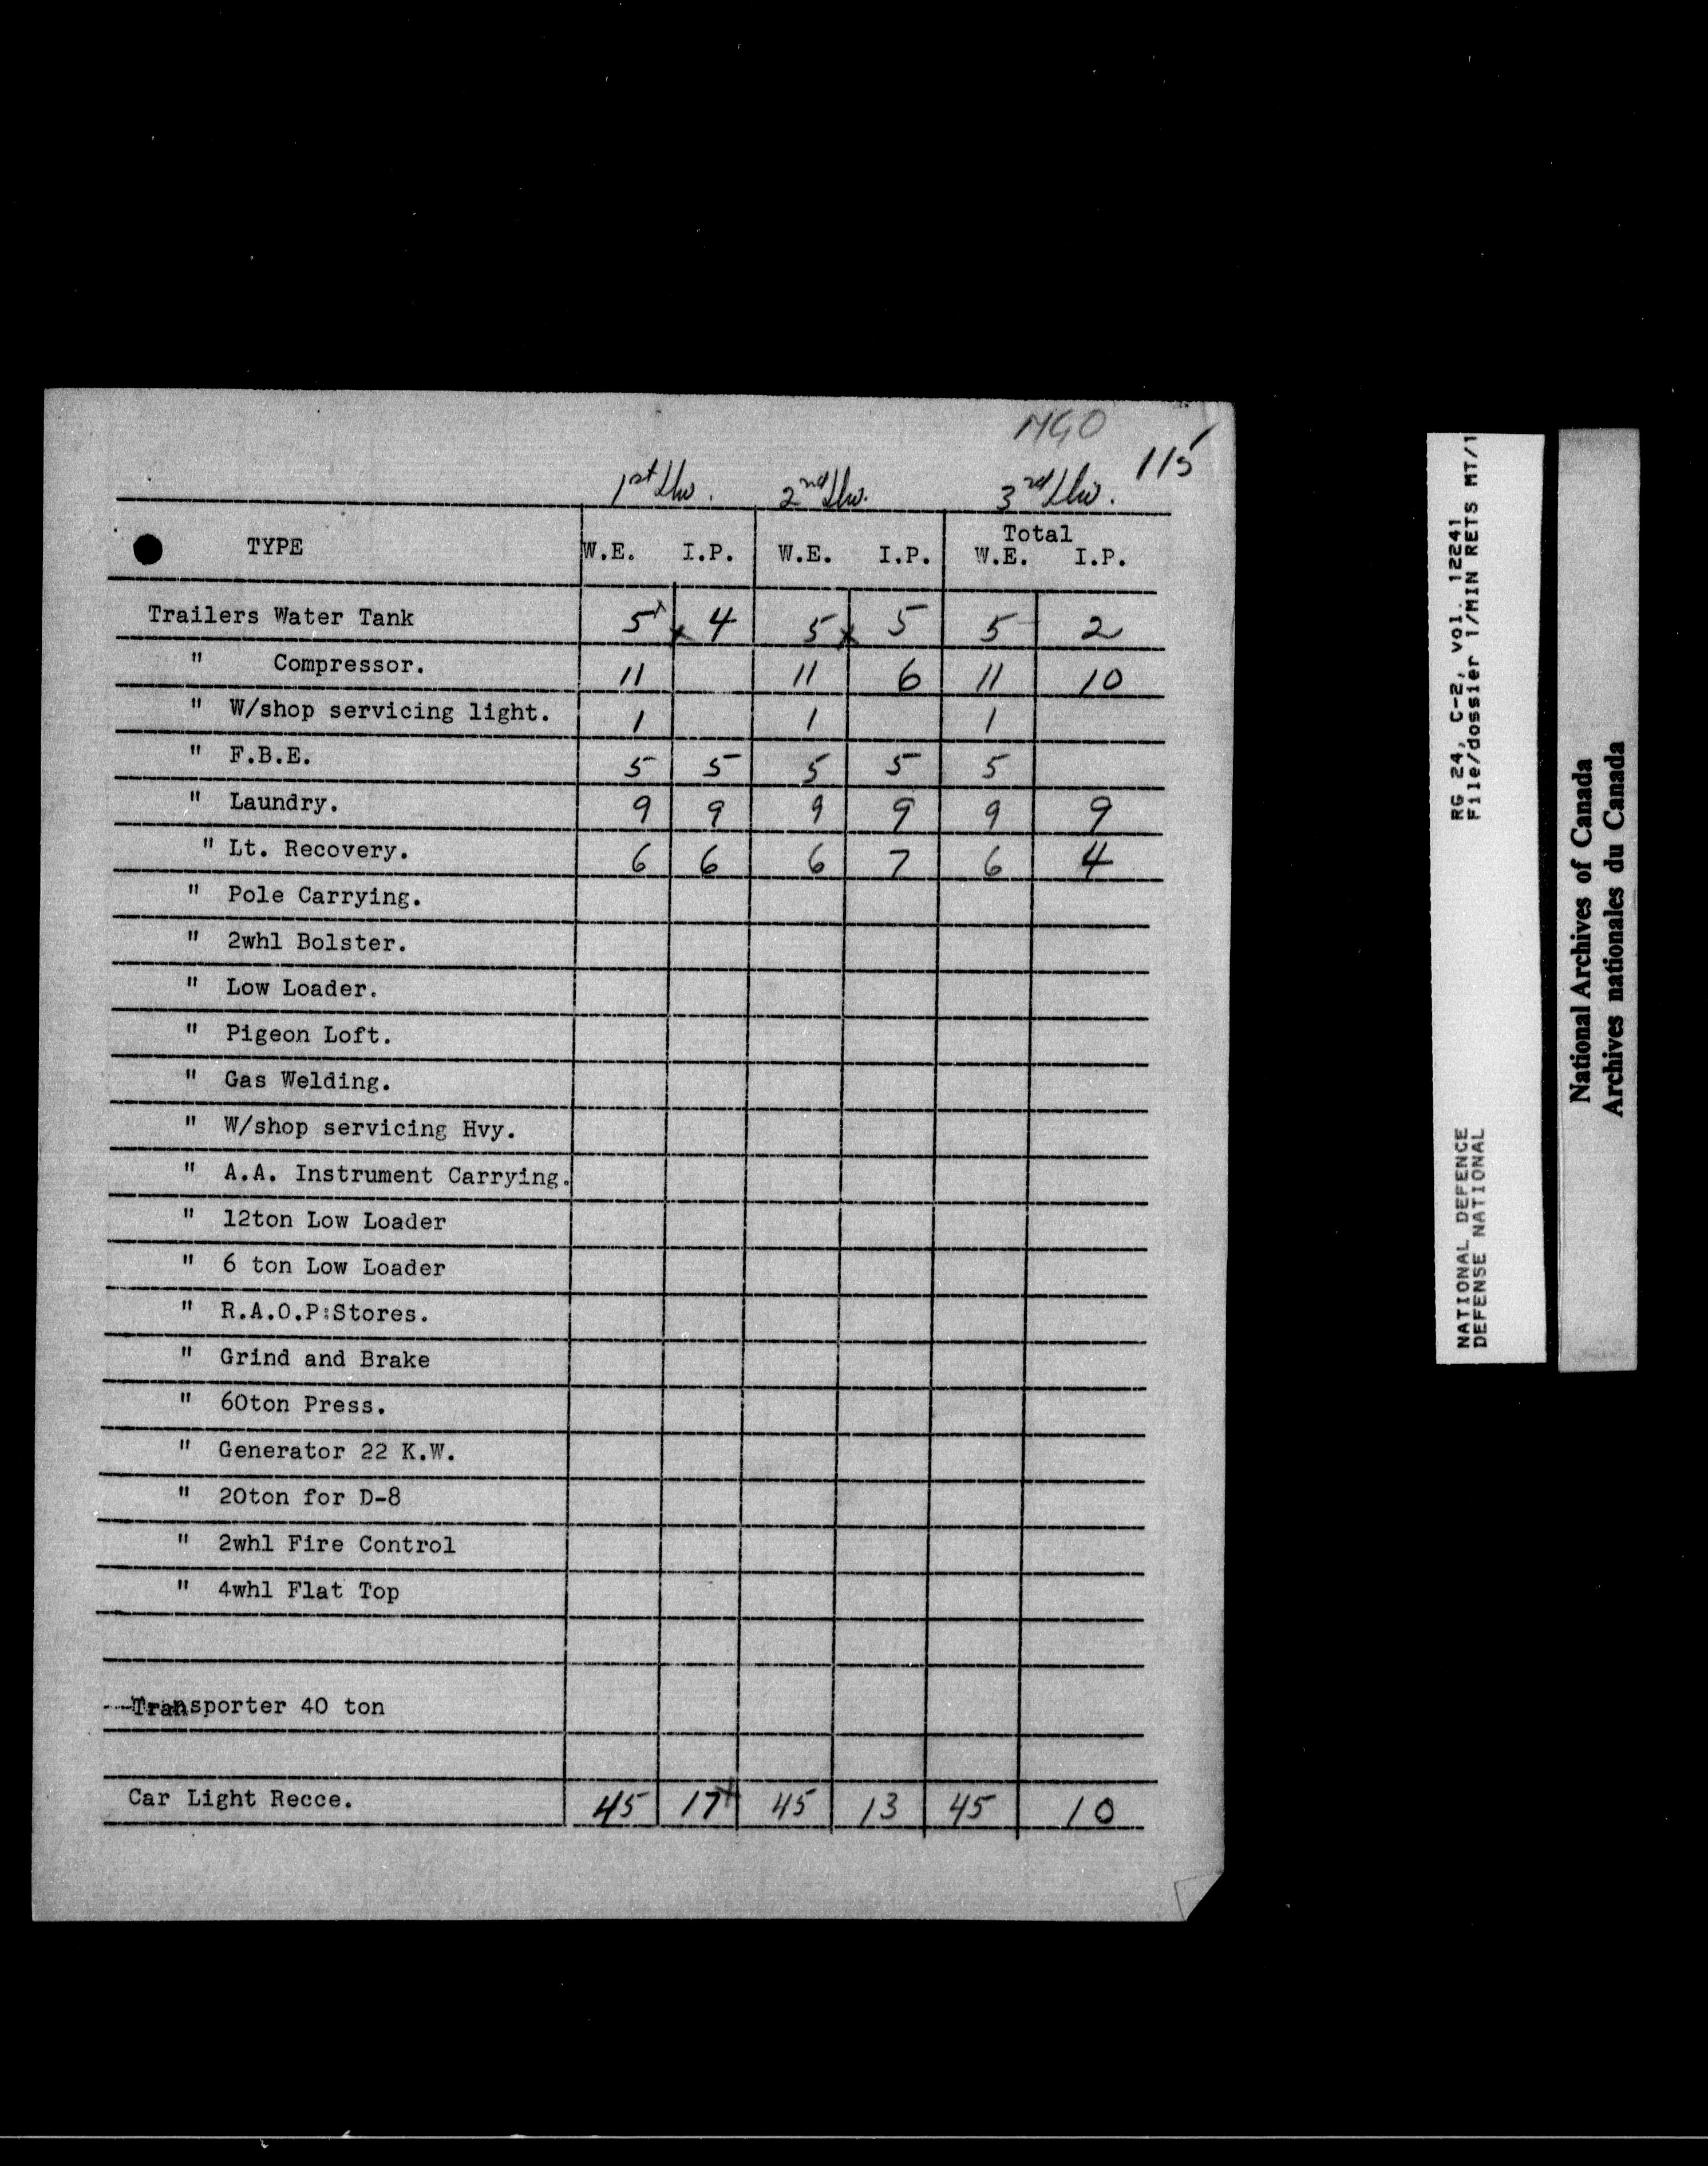 MGO
115
1st Div. 2nd Div. 3rd Div.
Total
TYPE W.E. I.P. W.E. I.P. W.E. I.P.
Trailers Water Tank 5x x 4 5 x 5 5 2
" Compressor. 11 11 6 11 10
" W/shop servicing light. 1 1 1
" F.B.E. 5 5 5 5 5
" Laundry. 9 9 9 9 9 9
" Lt. Recovery. 6 6 6 7 6 4
" Pole Carrying.
" 2whl Bolster.
" Low Loader.
" Pigeon Loft.
" Gas Welding.
" W/shop servicing Hvy.
" A.A. Instrument Carrying.
" 12ton Low Loader
" 6 ton Low Loader
" R.A.O.P:Stores.
" Grind and Brake
" 60ton Press.
" Generator 22 K.W.
" 20ton for D-8
" 2whl Fire Control
" 4whl Flat Top
Transporter 40 ton
Car Light Recce. 45 17x 45 13 45 10
NATIONAL DEFENCE RG 24, C-2, vol. 12241
DEFENSE NATIONAL File/dossier 1/MIN RETS MT/1
National Archives of Canada
Archives nationales du Canada